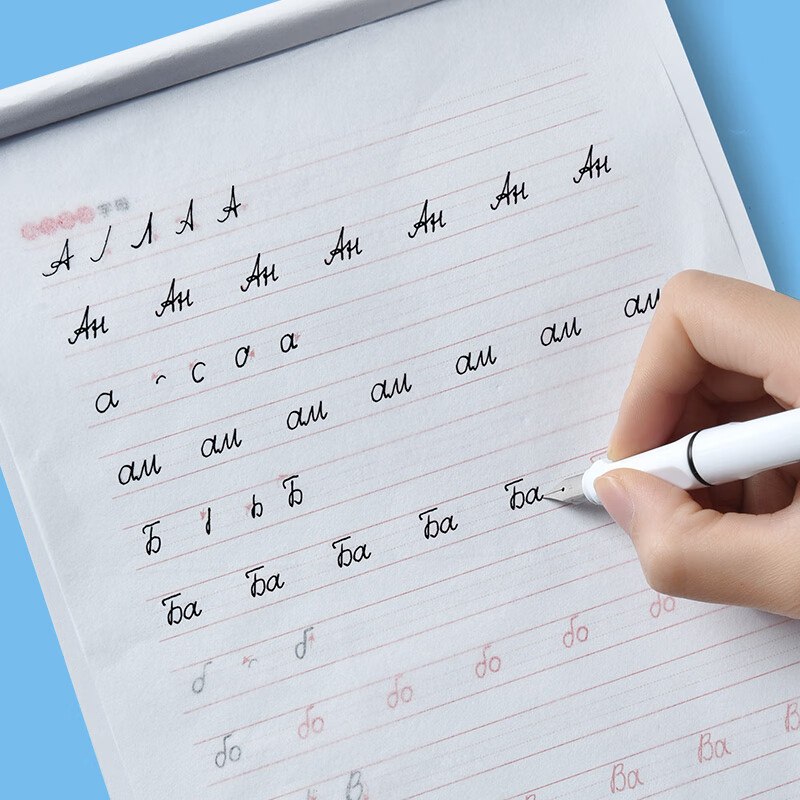 字母
А Л А А
Ан Ан Ан Ан Ан Ан Ан
а с о а
ам ам ам ам ам ам ам
Б ь Б
Ба Ба Ба Ба Ба
б б
бо бо бо бо бо бо
В
Ва Ва